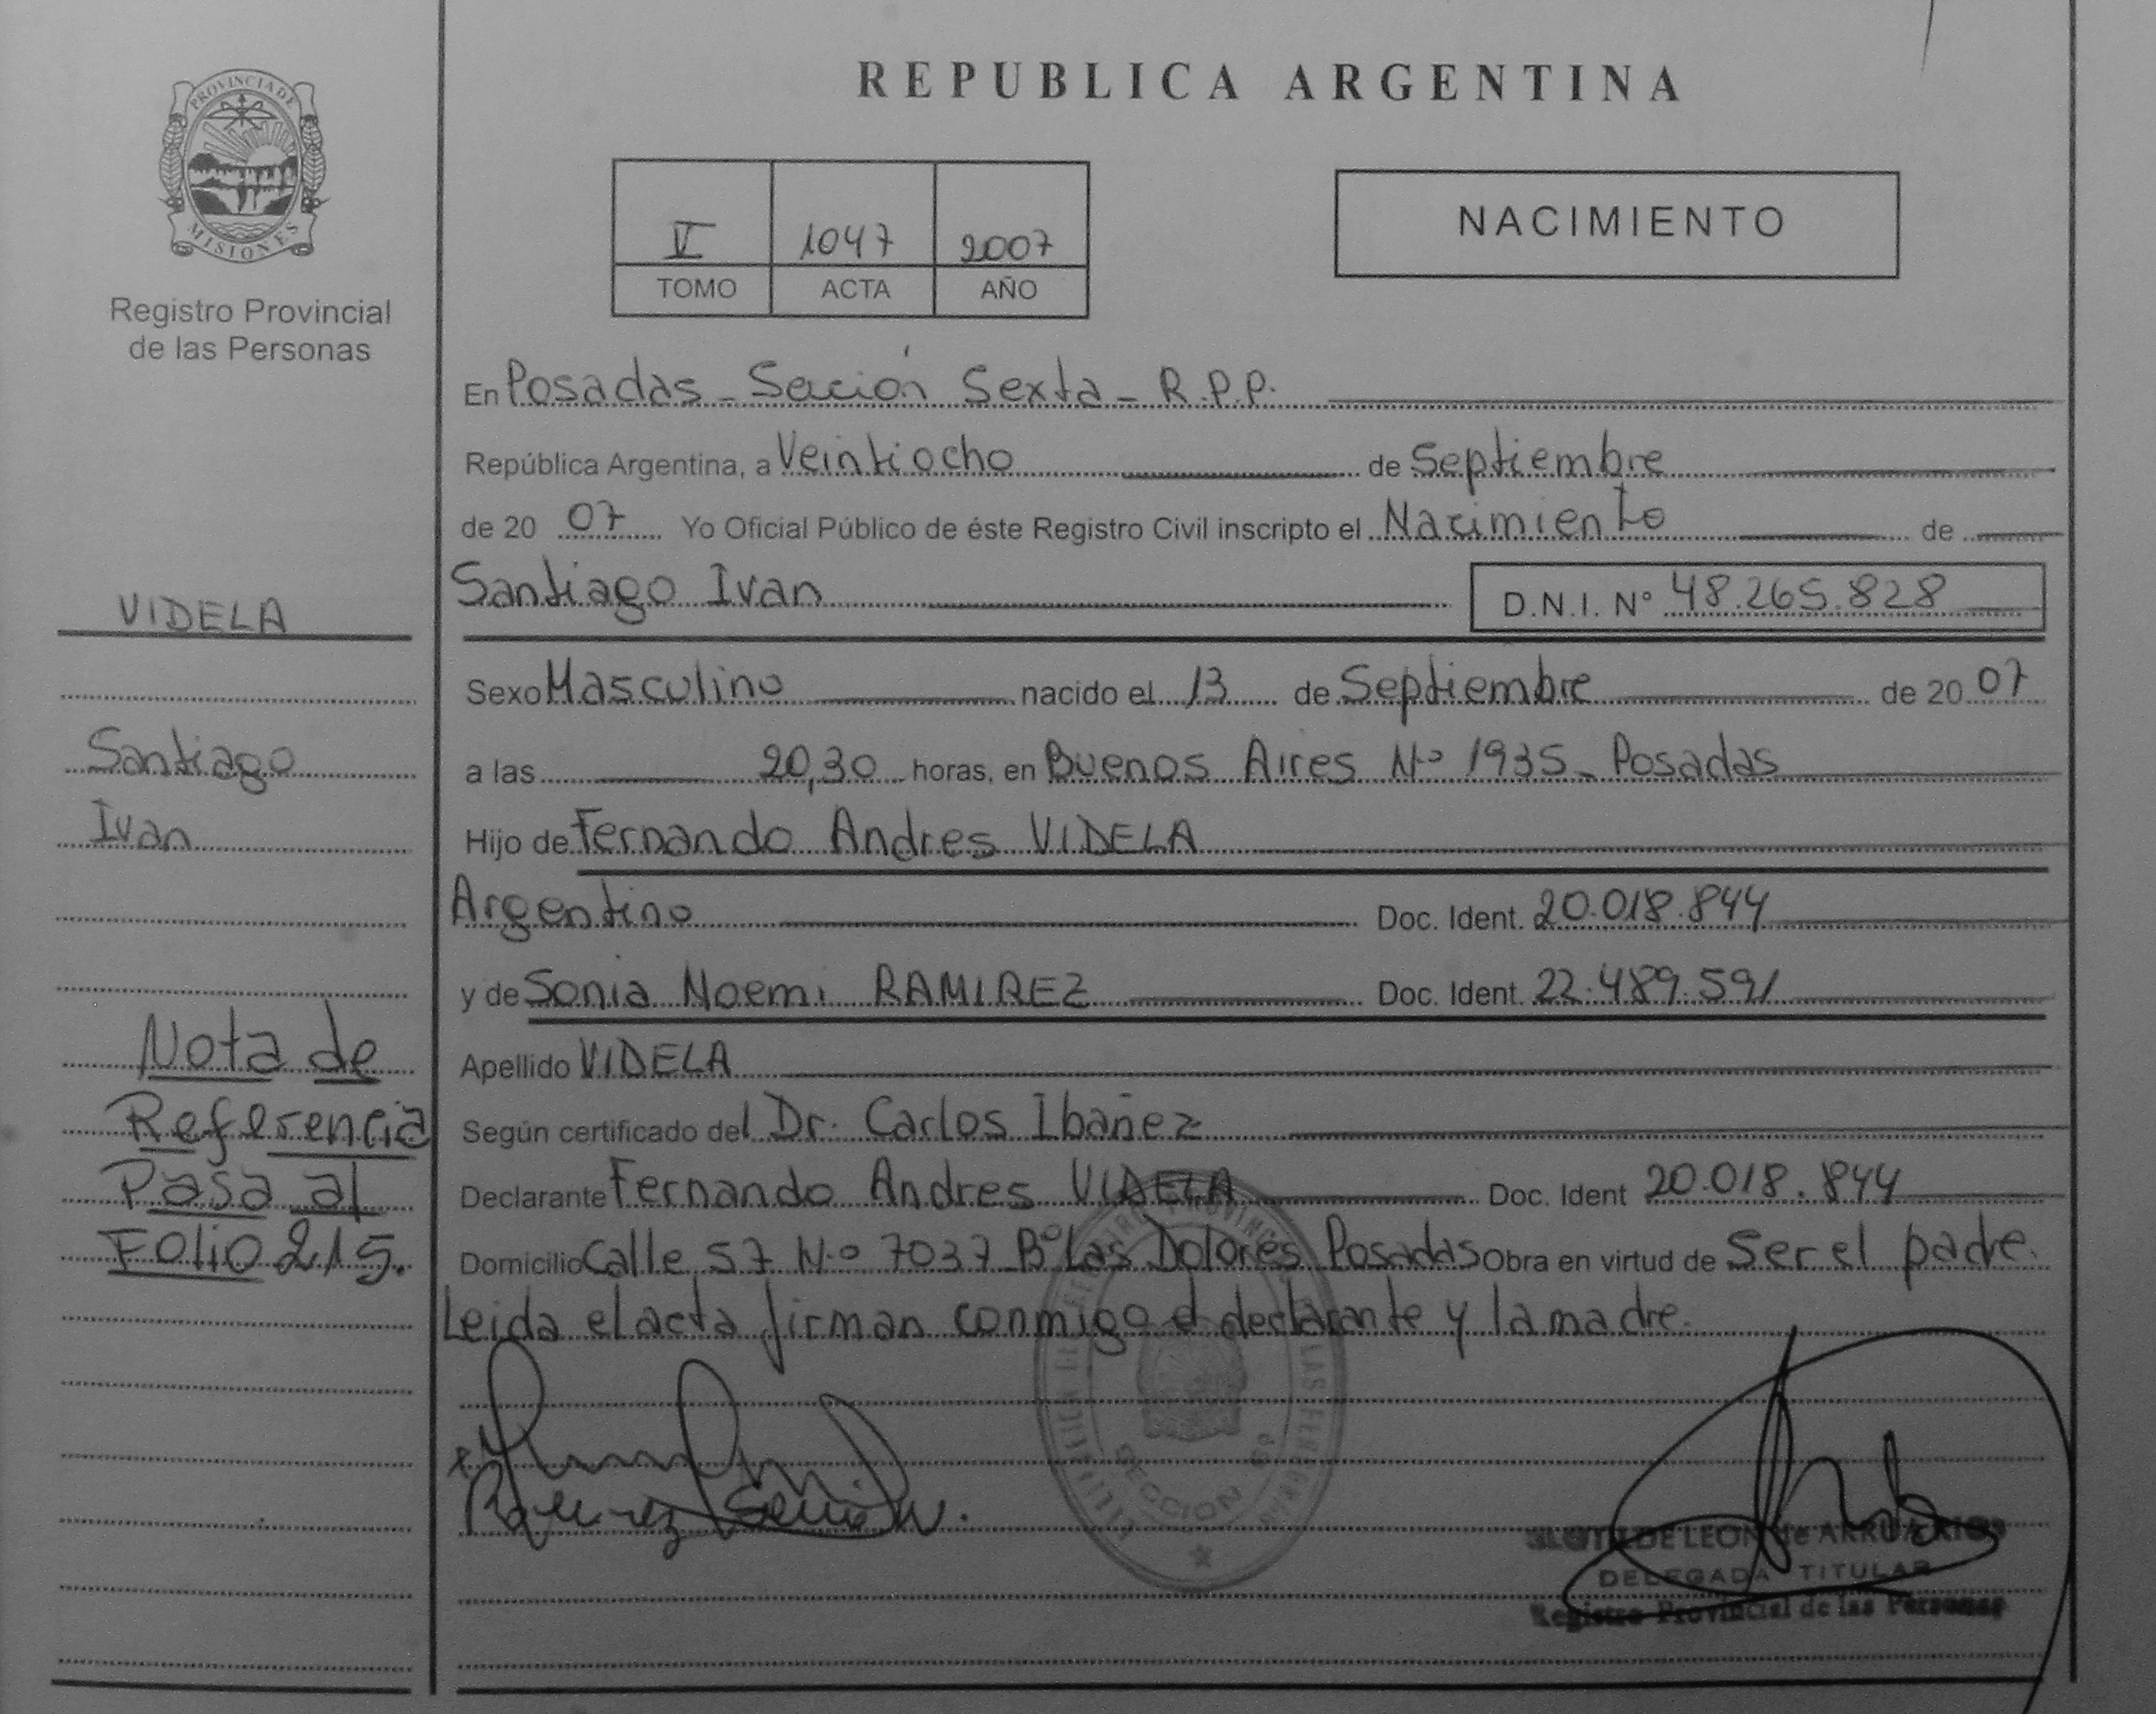 REPUBLICA ARGENTINA
PROVINCIA DE
MISIONES
Registro Provincial
de las Personas
V 1047 2007
TOMO ACTA AÑO
NACIMIENTO
En Posadas - Sección Sexta - R.P.P.
República Argentina, a Veintiocho de Septiembre
de 20 07 Yo Oficial Público de éste Registro Civil inscripto el Nacimiento de
Santiago Ivan D.N.I. Nº 48.265.828
Sexo Masculino nacido el 13 de Septiembre de 20 07
a las 20,30 horas, en Buenos Aires Nº 1935 - Posadas
Hijo de Fernando Andres VIDELA
Argentino Doc. Ident. 20.018.844
y de Sonia Noemi RAMIREZ Doc. Ident. 22.489.591
Apellido VIDELA
Según certificado del Dr. Carlos Ibañez
Declarante Fernando Andres VIDELA Doc. Ident 20.018.844
Domicilio Calle 57 Nº 7037 Bº Las Dolores Posadas Obra en virtud de Ser el padre.
Leida el acta firman conmigo el declarante y la madre.
VIDELA
Santiago
Ivan
Nota de
Referencia
Pasa al
Folio 215.
Ramirez Sonia N.
SECCION
DE LEON de ARRUA RIOS
DELEGADA TITULAR
Registro Provincial de las Personas